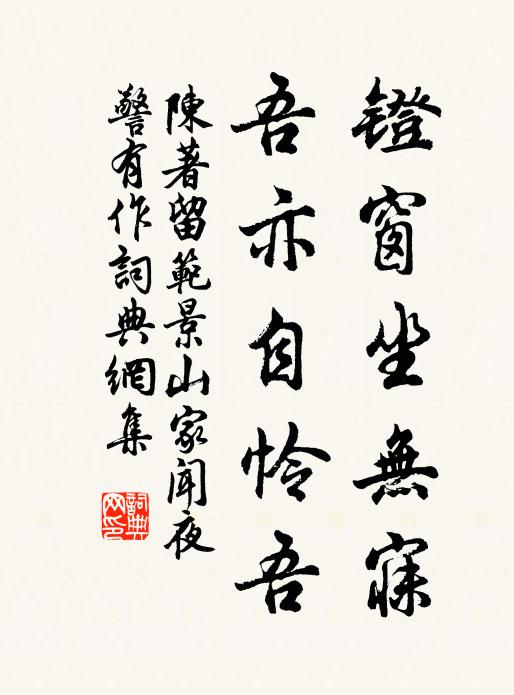 鐙窗坐無寐
吾亦自怜吾
陳著留範景山家聞夜
警有作詞典網集
詞典网印